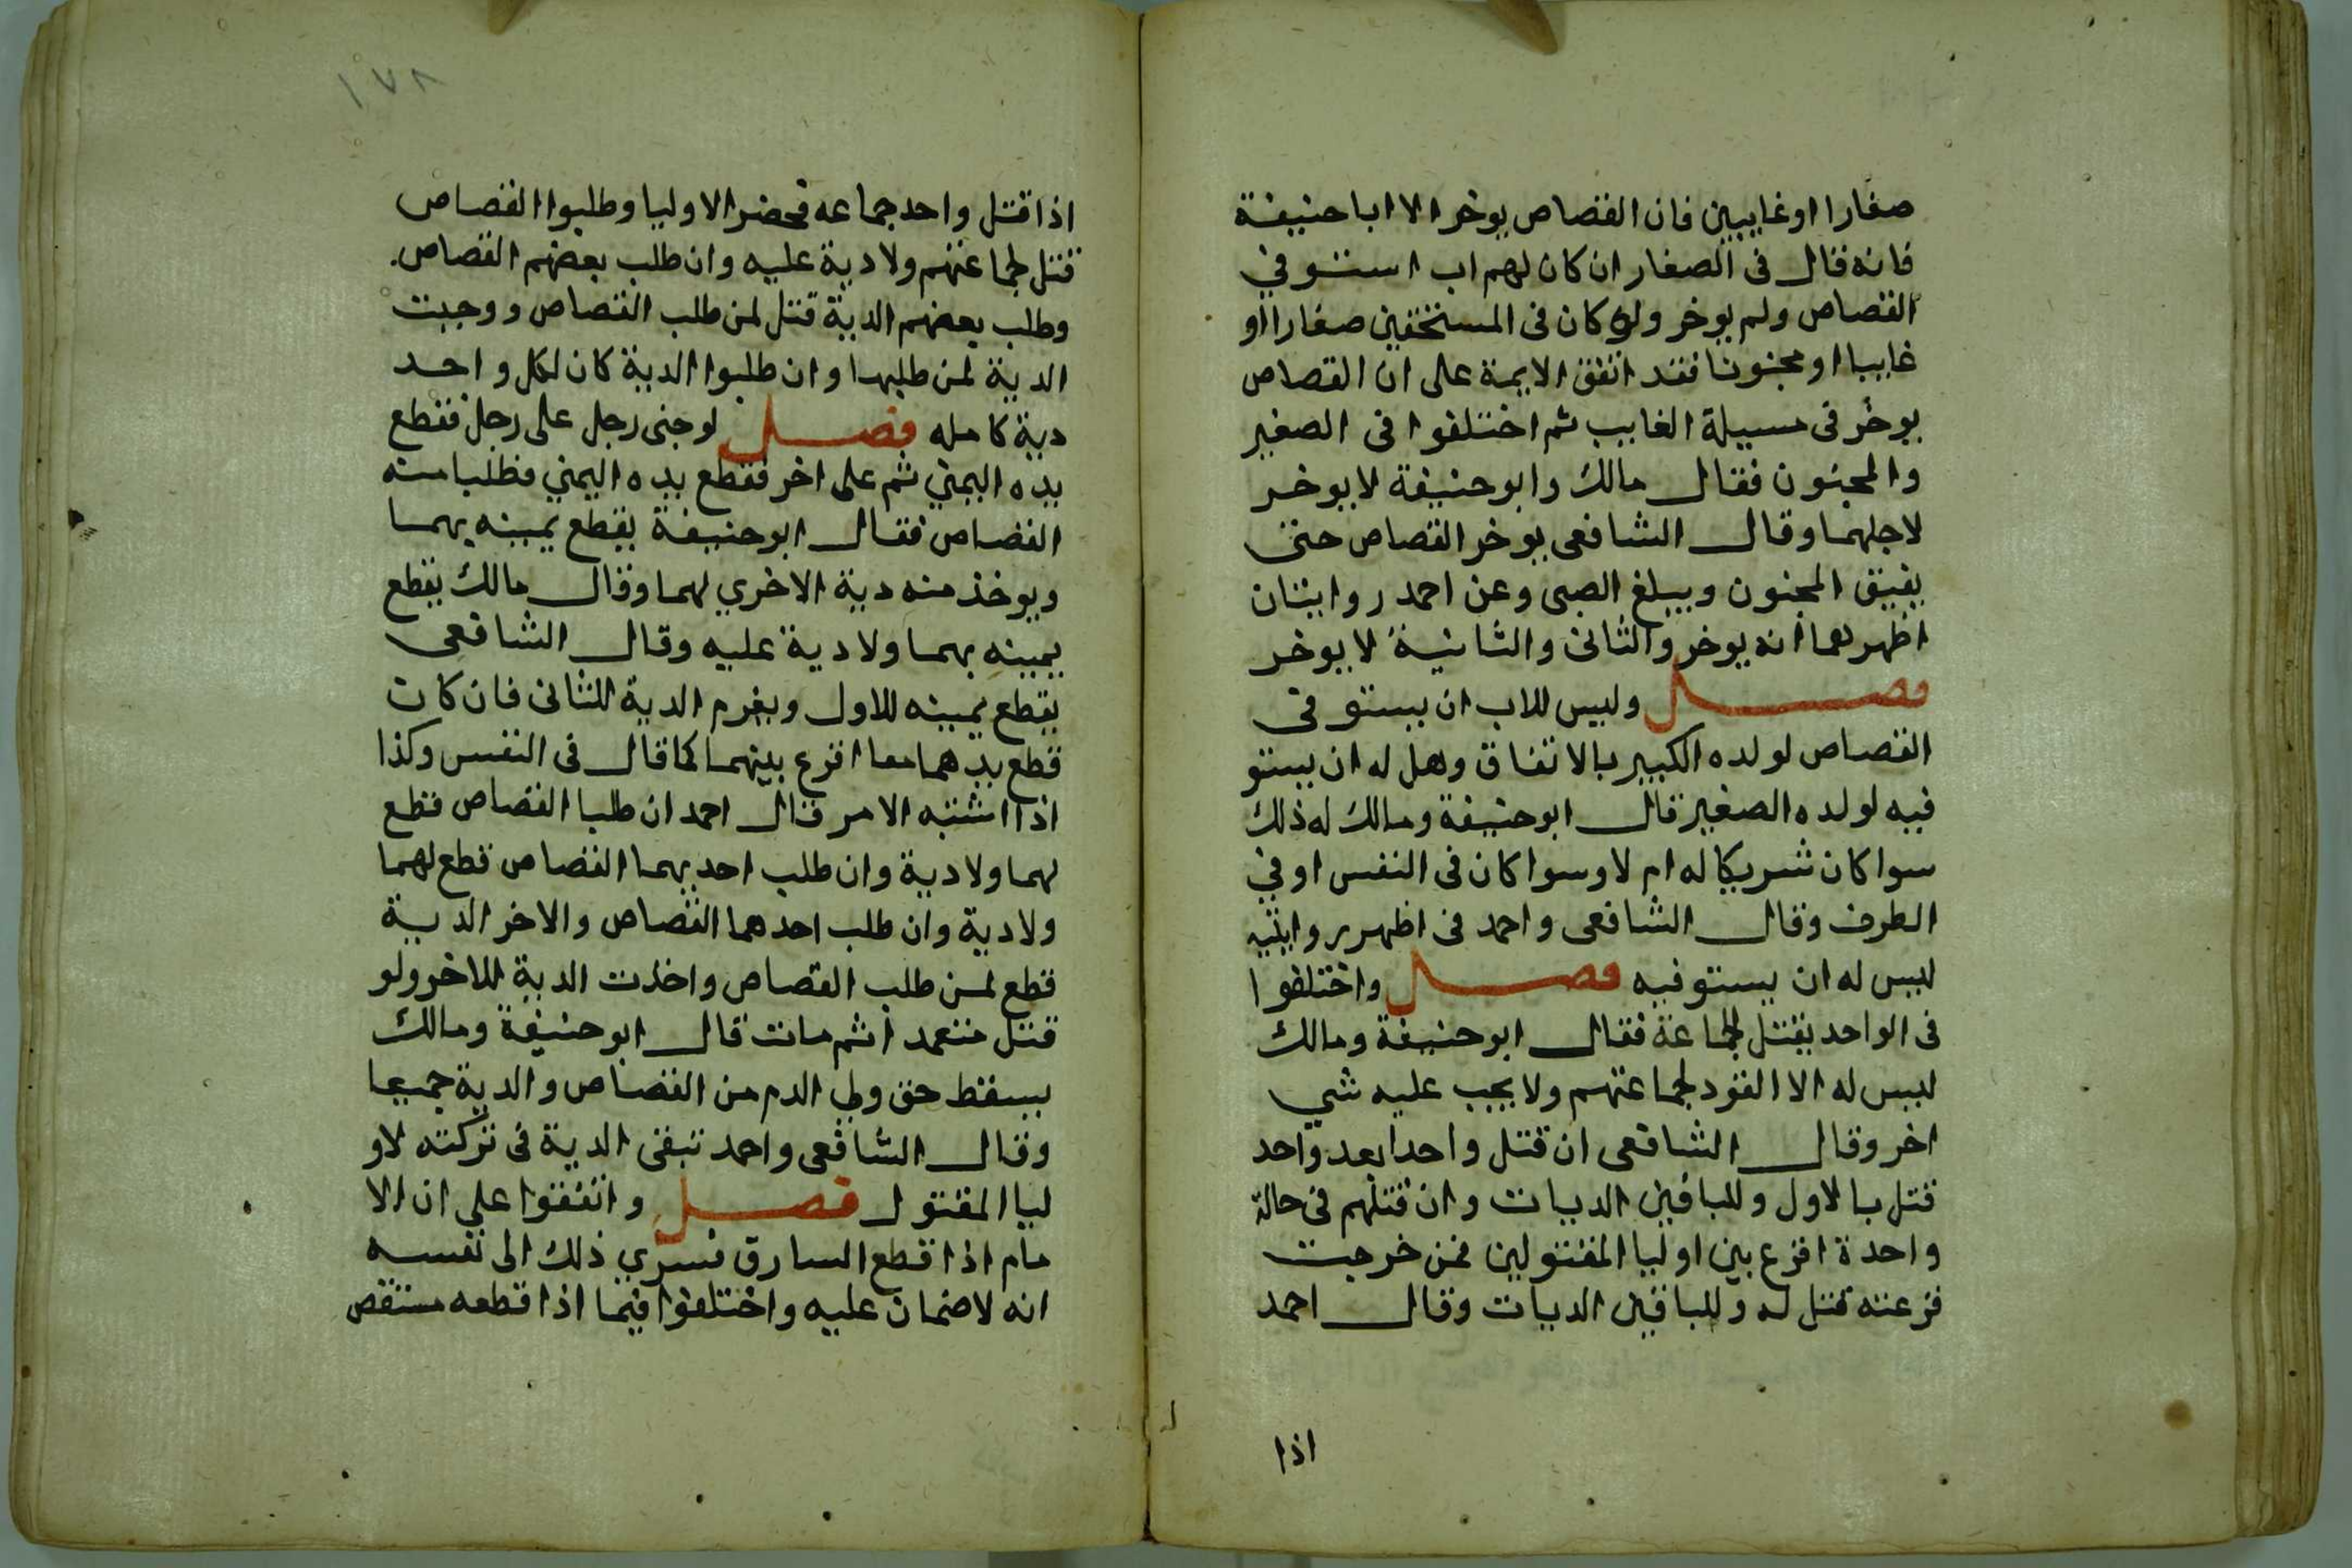 صغارا اوغايبين فان القصاص يوخر الا اباحنيفة
فانه قال فى الصغار ان كان لهم اب استوفي
القصاص ولم يوخر ولو كان فى المستحقين صغارا او
غايبا او مجنونا فقد اتفق الايمة على ان القصاص
يوخر فى مسيلة الغايب ثم اختلفوا فى الصغير
والمجنون فقال مالك وابو حنيفة لايوخر
لاجلهما وقال الشافعى يوخر القصاص حتى
يفيق المجنون ويبلغ الصبى وعن احمد روايتان
اظهرهما انه يوخر والثانى والثانية لا يوخر
فصل وليس للاب ان يستوفى
القصاص لولده الكبير بالاتفاق وهل له ان يستو
فيه لولده الصغير قال ابوحنيفة ومالك له ذلك
سوا كان شريكا له ام لا وسوا كان فى النفس او في
الطرف وقال الشافعى واحمد فى اظهر روايتيه
ليس له ان يستوفيه فصل واختلفوا
فى الواحد يقتل الجماعة فقال ابو حنيفة ومالك
ليس له الا القود لجماعتهم ولا يجب عليه شي
اخر وقال الشافعى ان قتل واحدا بعد واحد
قتل بالاول وللباقين الديات وان قتلهم فى حالة
واحدة اقرع بين اوليا المقتولين فمن خرجت
قرعته قتل له وللباقين الديات وقال احمد
اذا
١٧٨
اذا قتل واحد جماعه فحضر الاوليا وطلبوا القصاص
قتل لجماعتهم ولا دية عليه وان طلب بعضهم القصاص
وطلب بعضهم الدية قتل لمن طلب القصاص ووجبت
الدية لمن طلبها وان طلبوا الدية كان لكل واحد
دية كامله فصل لوجنى رجل على رجل فقطع
يده اليمني ثم على اخر فقطع يده اليمني فطلبا منه
القصاص فقال ابو حنيفة يقطع يمينه بهما
ويوخذ منه دية الاخري لهما وقال مالك يقطع
يمينه بهما ولا دية عليه وقال الشافعى
يقطع يمينه للاول ويغرم الدية للثانى فان كان
قطع يدهما معا اقرع بينهما كما قال فى النفس وكذا
اذا اشتبه الامر قال احمد ان طلبا القصاص قطع
لهما ولا دية وان طلب احديهما القصاص قطع لهما
ولا دية وان طلب احدهما القصاص والاخر الدية
قطع لمن طلب القصاص واخذت الدية للاخر ولو
قتل متعمدا ثم مات قال ابو حنيفة ومالك
يسقط حق ولي الدم من القصاص والدية جميعا
وقال الشافعى واحمد تبقى الدية فى تركته لاو
ليا المقتول فصل واتفقوا علي ان الا
مام اذا قطع السارق فسري ذلك الى نفسه
انه لا ضمان عليه واختلفوا فيما اذا قطعه مستقص